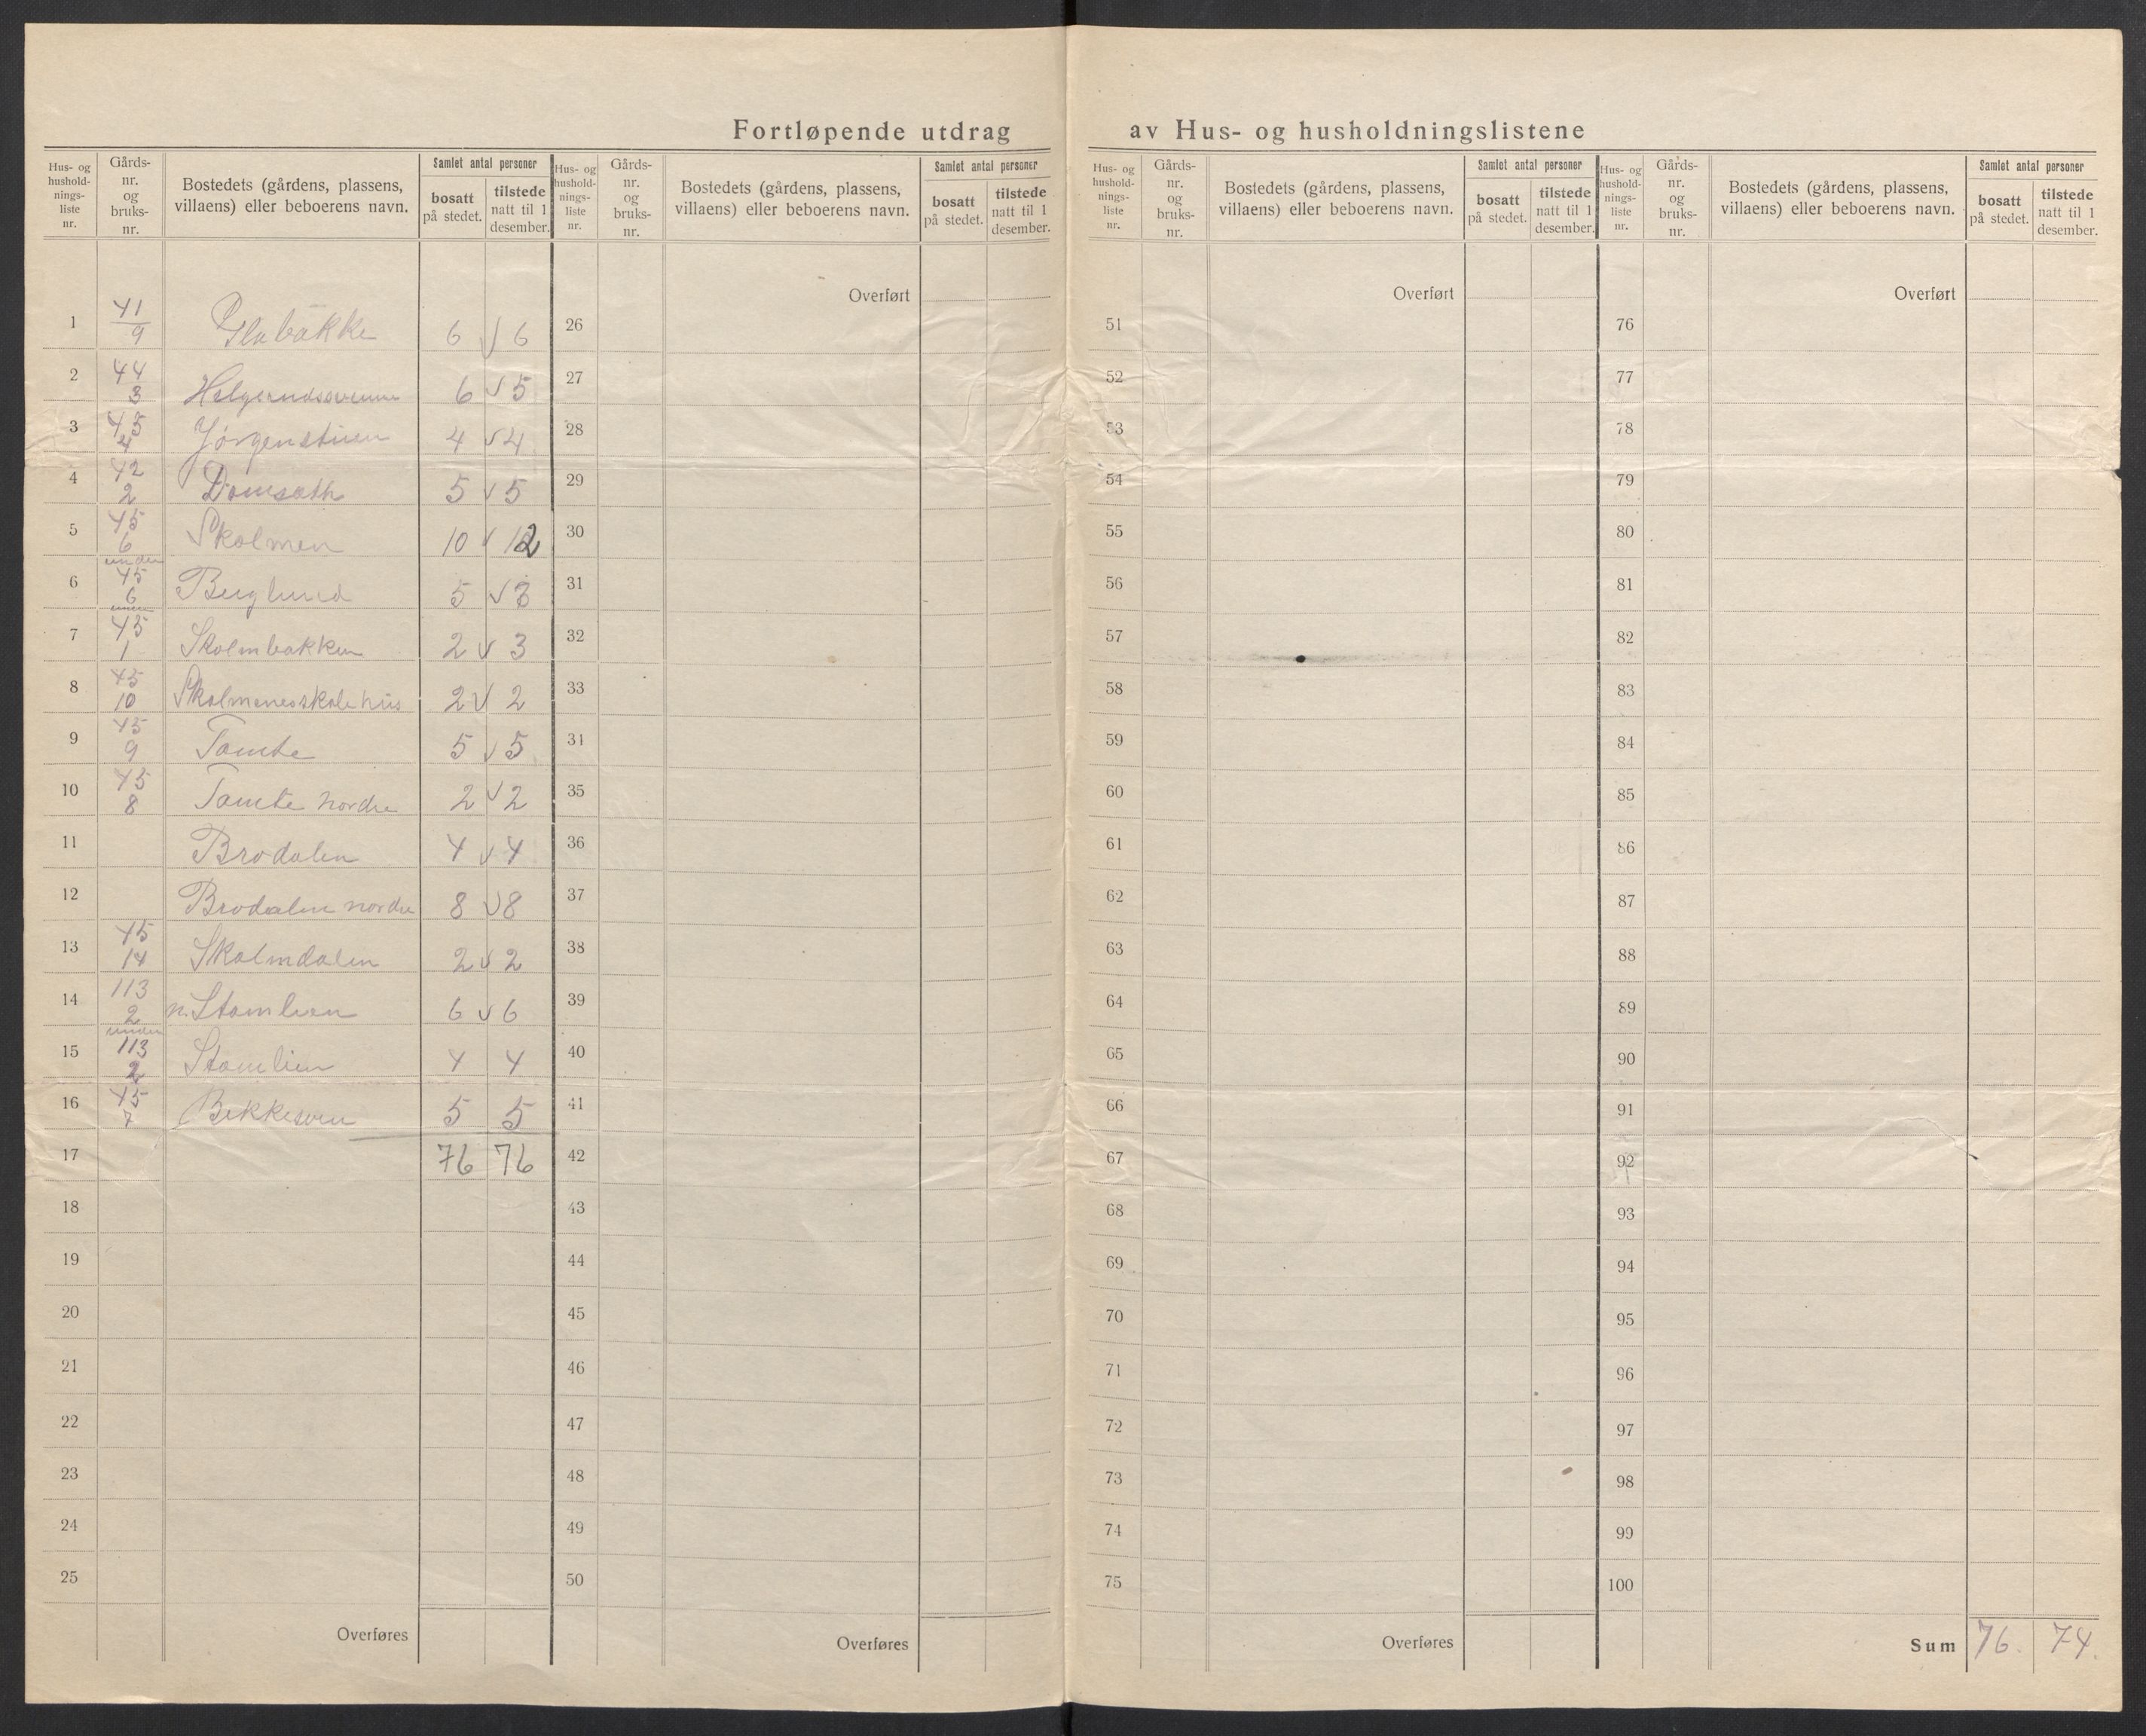 Fortløpende utdrag av Hus- og husholdningslistene
Hus- og hushold- nings- liste nr. | Gårds- nr. og bruks- nr. | Bostedets (gårdens, plassens, villaens) eller beboerens navn. | Samlet antal personer | bosatt på stedet. | tilstede natt til 1 desember.
1 41/9 6 √ 6
2 44/3 6 √ 5
3 45/4 Jørgenstuen 4 √ 4
4 42/2 5 √ 5
5 45/6 Skolmen 10 √ 12
6 under 45/6 Berglund 5 √ 3
7 under 45/1 Skolmbakken 2 √ 3
8 45/10 Skolmenes skolehus 2 √ 2
9 45/9 Tomte 5 √ 5
10 45/8 Tomte nordre 2 √ 2
11 Brodalen 4 √ 4
12 Brodalen nordre 8 √ 8
13 45/14 Skolmdalen 2 √ 2
14 113/2 n. Stomlien 6 √ 6
15 under 113/2 Stomlien 4 4
16 45/7 5 5
17 76 76
18
19
20
21
22
23
24
25
Overføres
Hus- og hushold- nings- liste nr. | Gårds- nr. og bruks- nr. | Bostedets (gårdens, plassens, villaens) eller beboerens navn. | Samlet antal personer | bosatt på stedet. | tilstede natt til 1 desember.
Overført
26
27
28
29
30
31
32
33
31
35
36
37
38
39
40
41
42
43
44
45
46
47
48
49
50
Overføres
Hus- og hushold- nings- liste nr. | Gårds- nr. og bruks- nr. | Bostedets (gårdens, plassens, villaens) eller beboerens navn. | Samlet antal personer | bosatt på stedet. | tilstede natt til 1 desember.
Overført
51
52
53
54
55
56
57
58
59
60
61
62
63
64
65
66
67
68
69
70
71
72
73
74
75
Overføres
Hus- og hushold- nings- liste nr. | Gårds- nr. og bruks- nr. | Bostedets (gårdens, plassens, villaens) eller beboerens navn. | Samlet antal personer | bosatt på stedet. | tilstede natt til 1 desember.
Overført
76
77
78
79
80
81
82
83
84
85
86
87
88
89
90
91
92
93
94
95
96
97
98
99
100
Sum 76. 74.